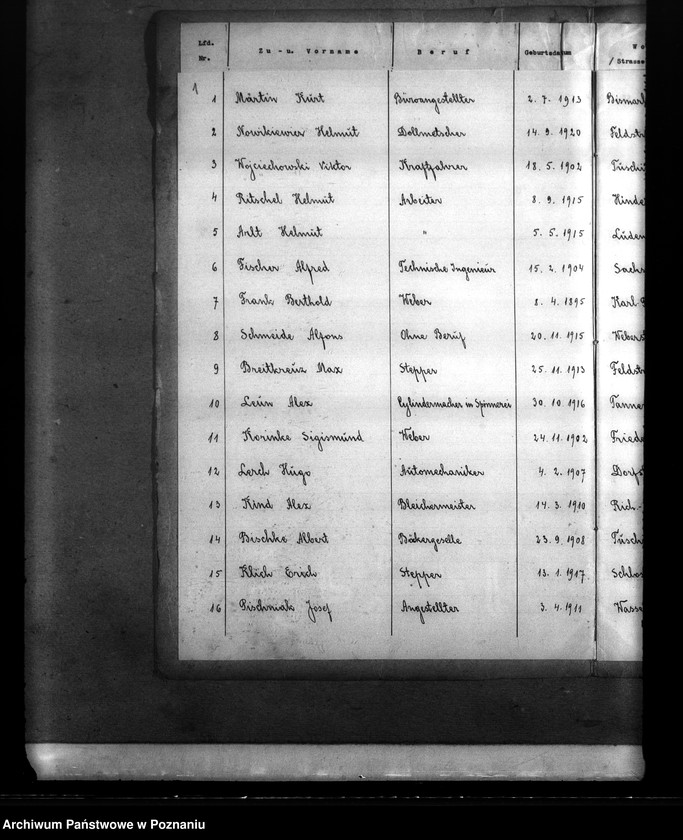 Lfd. Nr. Zu-u. Vorname Beruf Geburtsdatum Wo
/Strasse
1
1 Martin Kurt Büroangestellter 2. 7. 1913
2 Nowikiewicz Helmut Dollmetscher 14. 9. 1920 Feldstr
3 Wojciechowski Viktor Kraftfahrer 18. 5. 1902 Tuschi
4 Ritschel Helmut Arbeiter 8. 9. 1915 Hinde
5 Arlt Helmut " 5. 5. 1915 Lüden
6 Fischer Alfred Technische Ingenieur 15. 2. 1904 Sachs
7 Frank Berthold Weber 8. 4. 1895 Karl
8 Schmeide Alfons Ohne Beruf 20. 11. 1915 Weberst
9 Breitkreuz Max Stepper 25. 11. 1913 Feldstr
10 Leun Alex Cylindermacher in Spinnerei 30. 10. 1916 Tanne
11 Korinke Sigismund Weber 24. 11. 1902 Friede
12 Lerch Hugo Automechaniker 4. 2. 1907 Dorfs
13 Kind Alex Bleichermeister 14. 3. 1910 Rich.-
14 Beschke Albert Bäkergeselle 23. 9. 1908 Tuschi
15 Klich Erich Stepper 13. 1. 1917 Schlos
16 Pischniak Josef Angestellter 3. 4. 1911 Wass
Archiwum Państwowe w Poznaniu